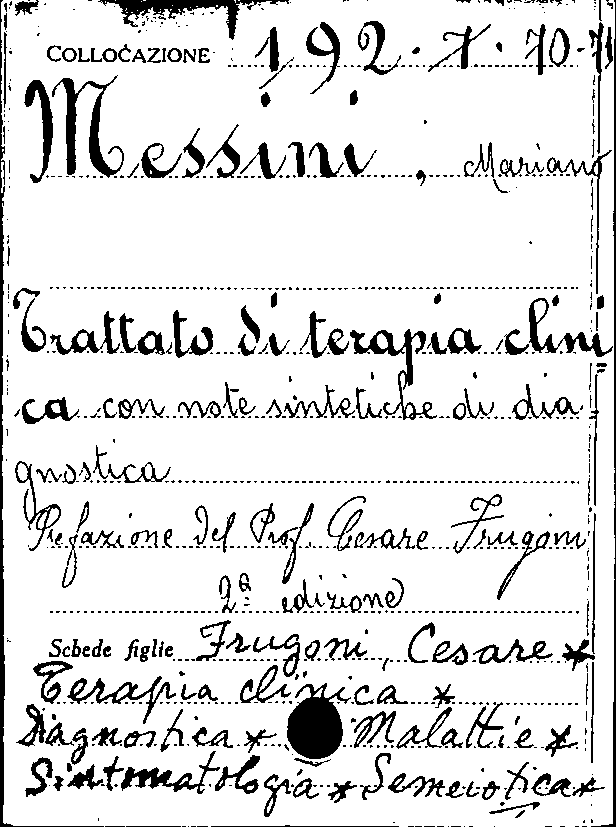 COLLOCAZIONE 192.7.70-71
Messini, Mariano
Trattato di terapia clini=
ca con note sintetiche di dia=
gnostica
Prefazione del Prof. Cesare Frugoni
2ª edizione
Schede figlie Frugoni, Cesare *
Terapia clinica *
Diagnostica * Malattie *
Sintomatologia * Semeiotica *